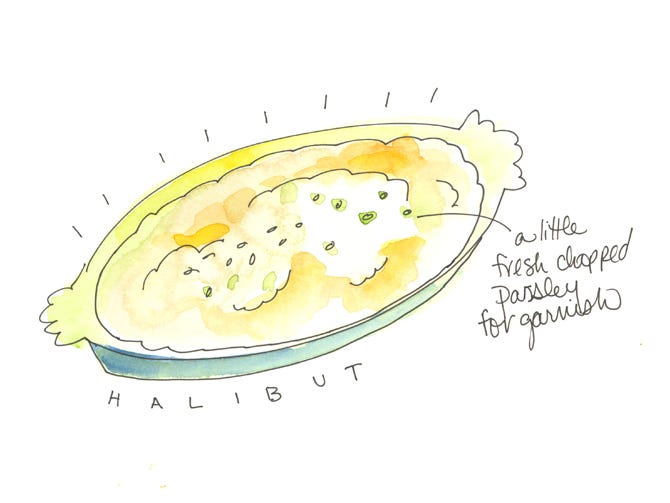 a little
fresh chopped
parsley
for garnish
HALIBUT